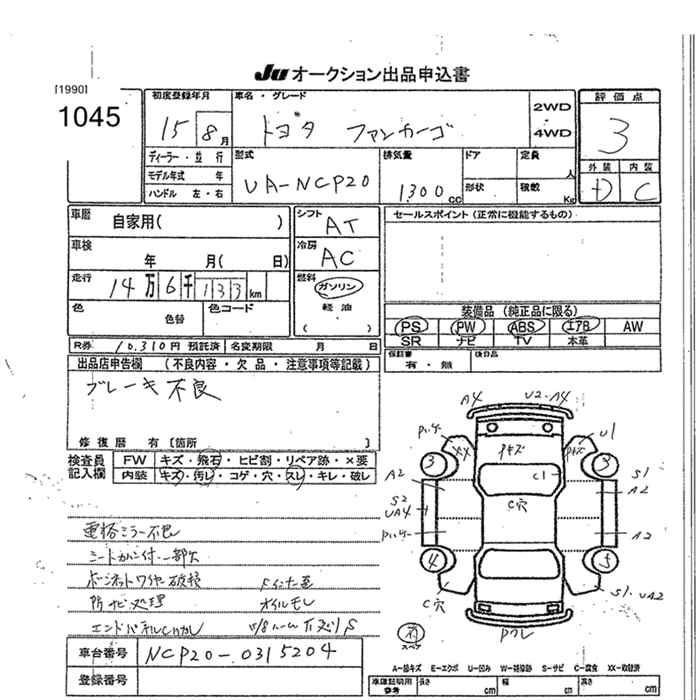 JU オークション出品申込書
[1990]
1045
初度登録年月 車名・グレード 2WD 4WD 評価点
15 8月 トヨタ ファンカーゴ 3
ディーラー・並行 型式 排気量 ドア 定員 人 外装 内装
モデル年式 年 UA-NCP20 1300cc 形状 積載 Kg D C
ハンドル 左・右
車歴 自家用( ) シフト AT セールスポイント (正常に機能するもの)
車検 年 月( 日) 冷房 AC
走行 14万6千133km 燃料 ガソリン
色 色替 色コード 軽油 装備品 (純正品に限る)
( ) PS PW ABS エアB AW
SR ナビ TV 本革
R券 10,310円 預託済 名変期限 月 日 保証書 有・無 後日品
出品店申告欄 (不良内容・欠品・注意事項等記載)
ブレーキ不良
修復歴 有〔箇所 〕
検査員記入欄 FW キズ・飛石・ヒビ割・リペア跡・×要
内装 キズ・汚レ・コゲ・穴・スレ・キレ・破レ
電格ミラー不良
シートカバー付 一部欠
ボーネットワイヤー破損
防サビ処理 オイルモレ
A4 U2・A4
U1
キズ
3 3
A2 C1 S1
C穴 A2
S2
UA4
A2
4 5
C穴 S1・UA2
スペア
車台番号 NCP20-0315204
登録番号
A-線キズ E-エクボ U-凹み W-補修跡 S-サビ C-腐食 XX-交換済
車庫証明用参考 長さ cm 幅 cm 高さ cm